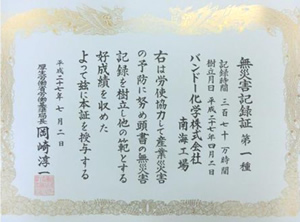 無災害記録証 第一種
記録時間 三百七十万時間
樹立月日 平成二十七年四月二日
バンドー化学株式会社
南海工場
右は労使協力して産業災害
の予防に努め頭書の無災害
記録を樹立し他の範とする
好成績を収めた
よって茲に本証を授与する
平成二十七年七月二日
厚生労働省労働基準局長 岡崎淳一